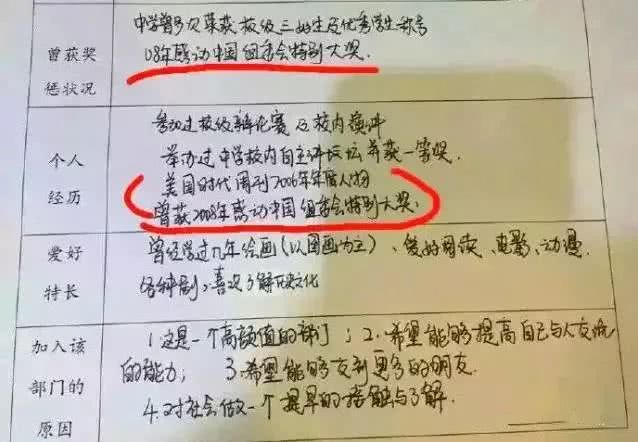 曾获奖
惩状况
中学曾多次荣获校级三好生及优秀学生称号
08年感动中国组委会特别大奖.
个人
经历
参加过校级辩论赛及校内演讲
举办过中学校内自主讲坛并获一等奖.
美国时代周刊2006年年度人物
曾获2008年感动中国组委会特别大奖.
爱好
特长
曾经学过几年绘画(以国画为主)、爱好阅读、电影、动漫
各种剧,喜欢了解历史文化
加入该
部门的
原因
1.这是一个高颜值的部门;2.希望能够提高自己与人交流
的能力; 3.希望能够交到更多的朋友.
4.对社会做一个提早的接触与了解.